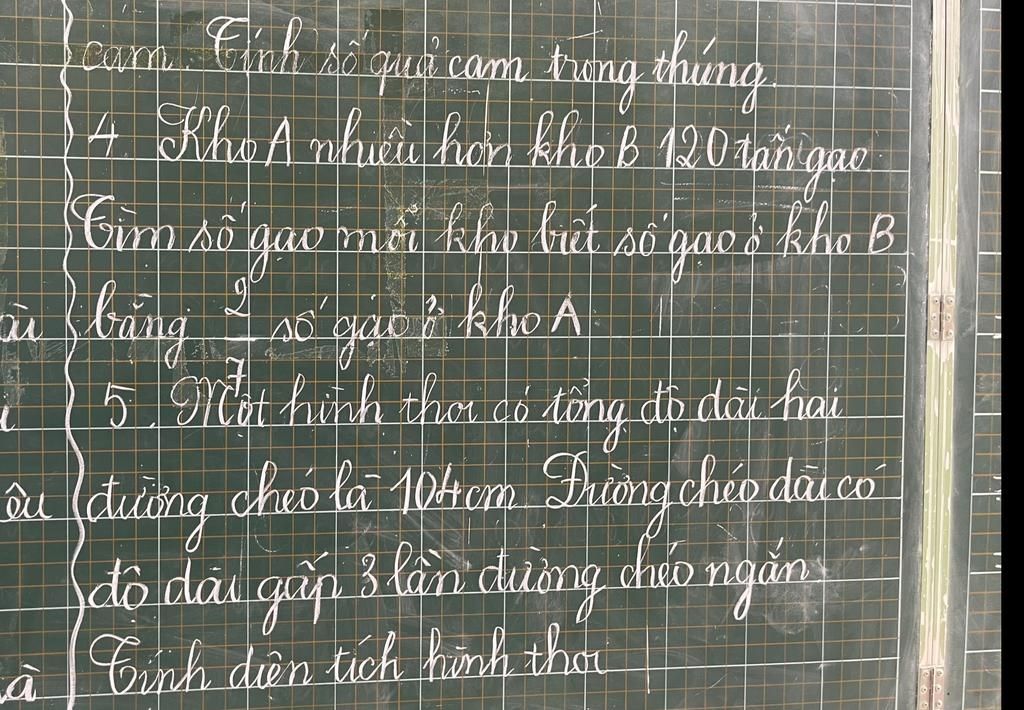 cam. Tính số quả cam trong thúng.
4. Kho A nhiều hơn kho B 120 tấn gạo.
Tìm số gạo mỗi kho biết số gạo ở kho B
bằng 2/7 số gạo ở kho A
5. Một hình thoi có tổng độ dài hai
đường chéo là 104cm. Đường chéo dài có
độ dài gấp 3 lần đường chéo ngắn.
Tính diện tích hình thoi